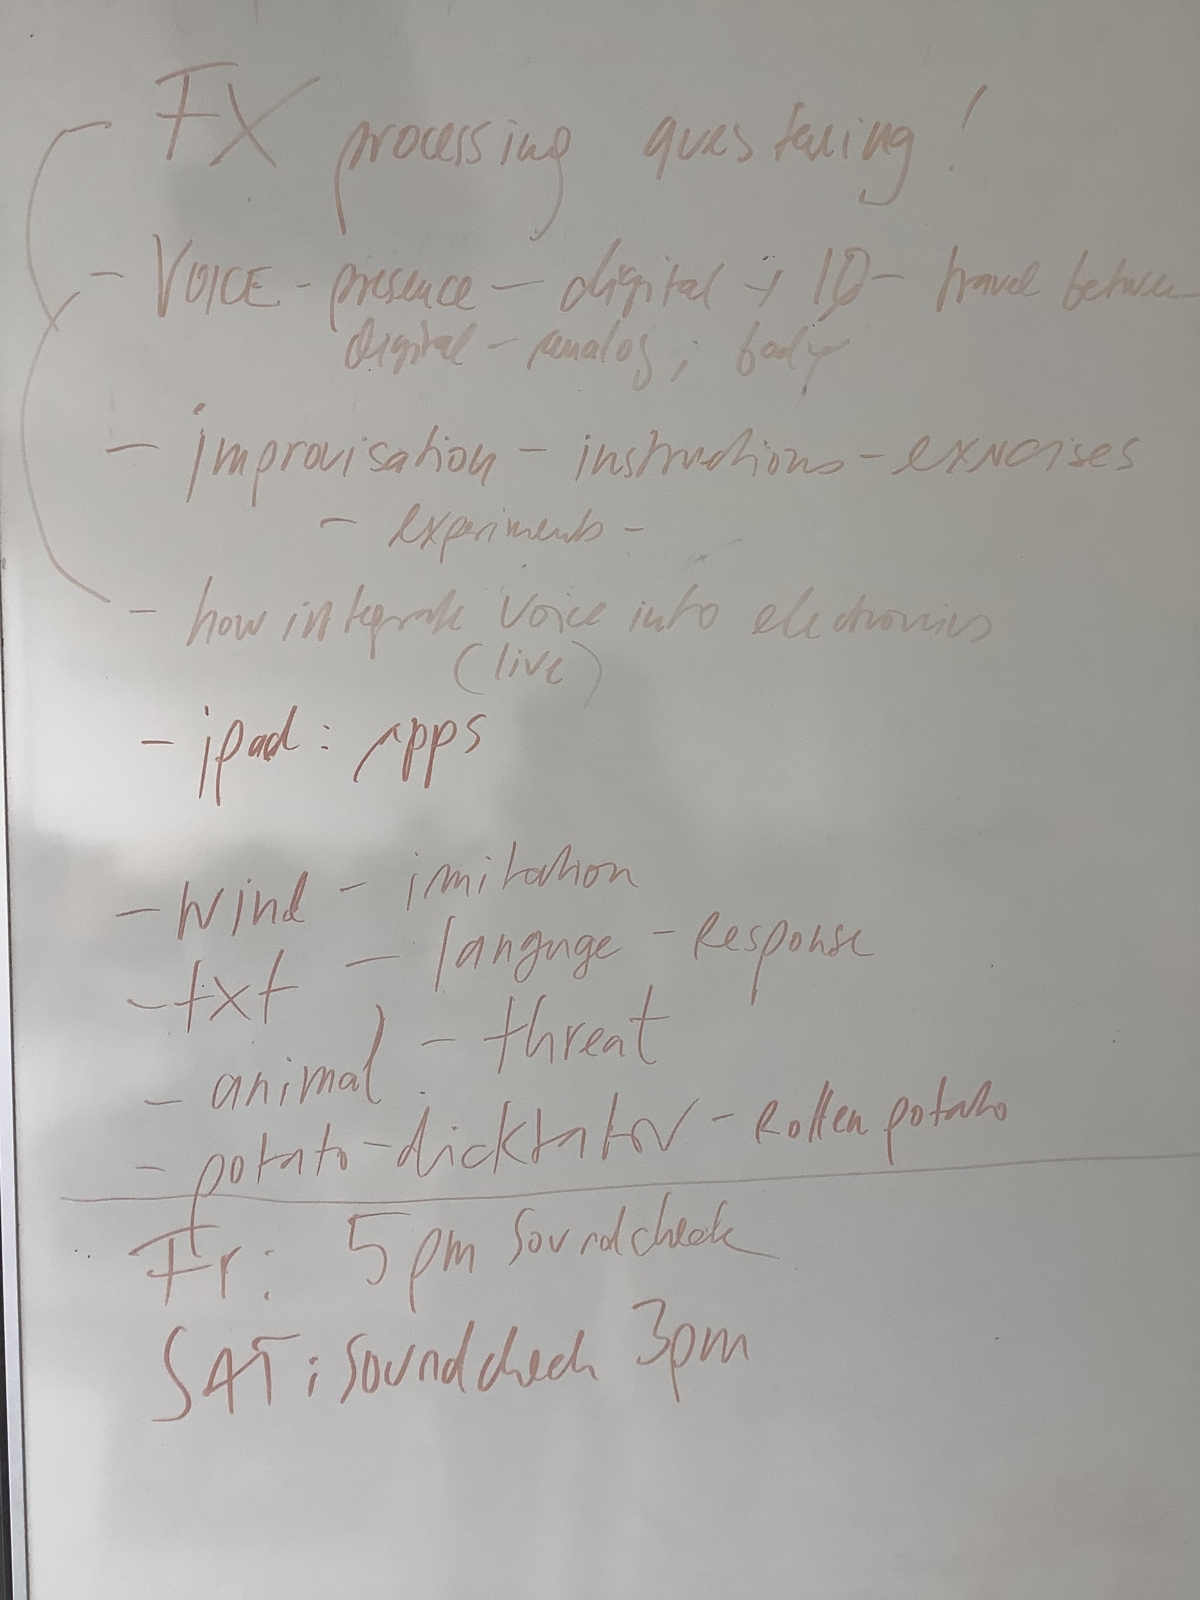 - FX processing questening!
- VOICE - presence - digital → ID - travel between
digital - analog, body
- improvisation - instructions - exercises
- experiments -
- how integrate voice into electronics
(live)
- ipad: Apps
- wind - imitation
- txt - languge - Response
- animal - threat
- potato - dicktator - Rotten potato
Fr: 5 pm soundcheck
SAT: soundcheck 3pm